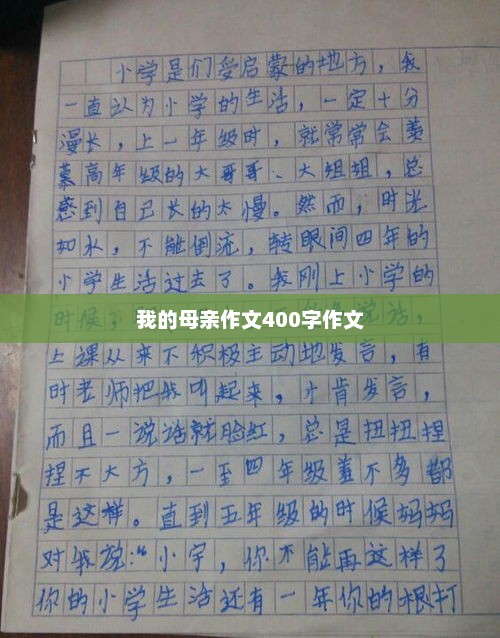 小学是们受启蒙的地方，我
一直认为小学的生活，一定十分
漫长，上一年级时，就常常会羡
慕高年级的大哥哥、大姐姐，总
感到自己长的太慢。然而，时光
如水，不能倒流，转眼间四年的
小学生活过去了。我刚上小学的
时候，说话，
我的母亲作文400字作文
上课从来不积极主动地发言，有
时老师把我叫起来，才肯发言，
而且一说话就脸红，总是扭扭捏
捏不大方，一至四年级差不多都
是这样。直到五年级的时候妈妈
对我说：“小宇，你不能再这样了
你的小学生活还有一年你的根打